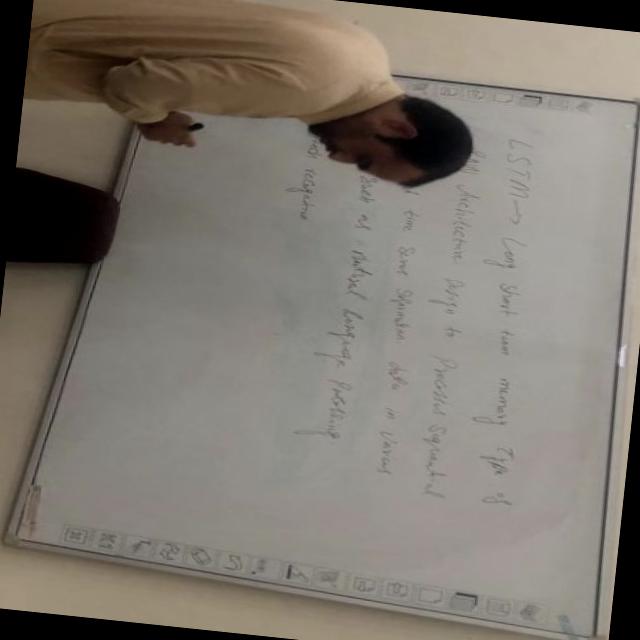 LSTM → Long short term memory Type of
Architecture Design to Processed Sequential
time data in various
such as natural language processing
response